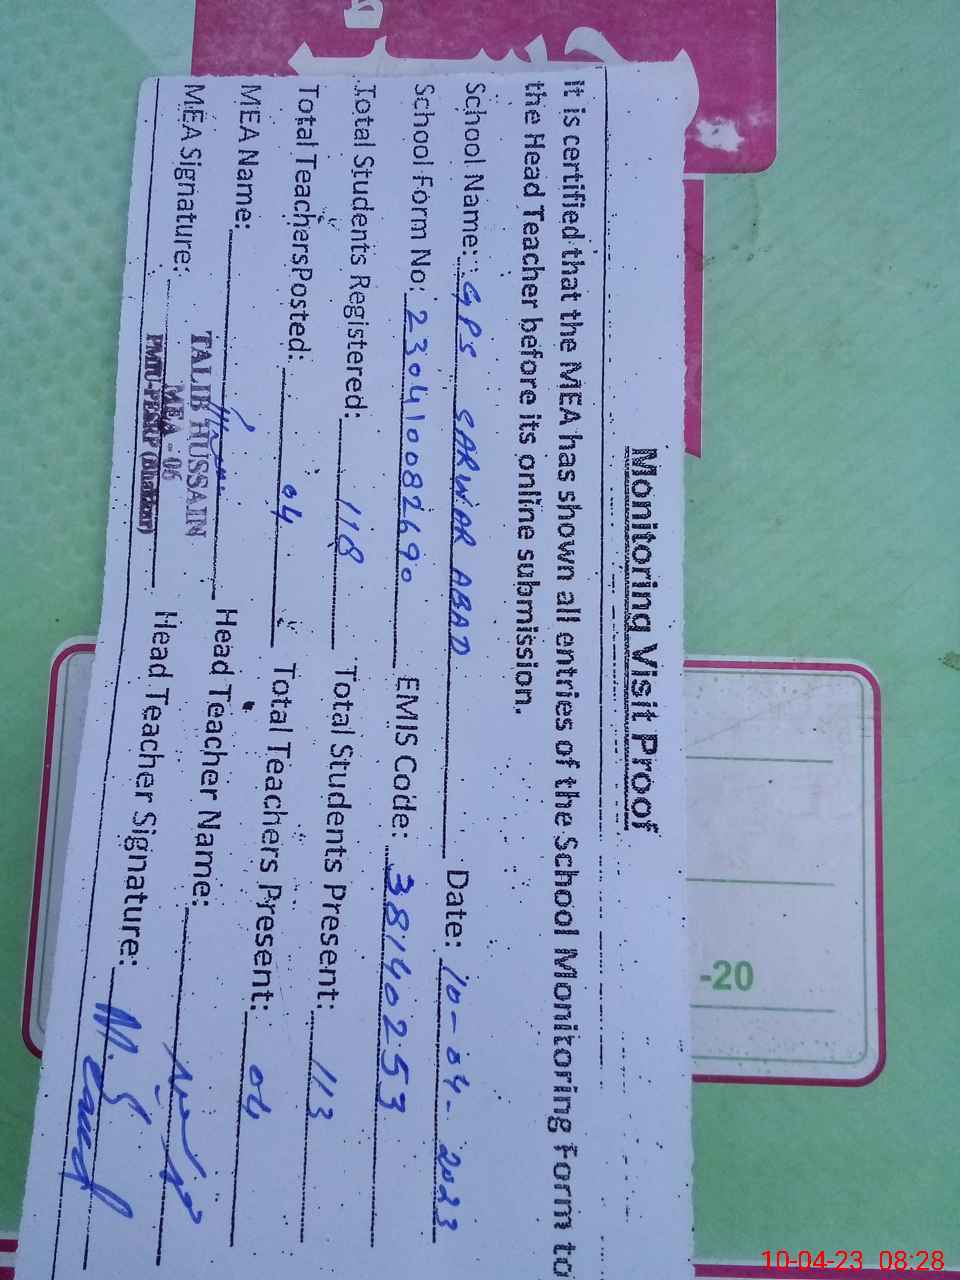 Monitoring Visit Proof
It is certified that the MEA has shown all entries of the School Monitoring Form to
the Head Teacher before its online submission.
School Name: GPS SARWAR ABAD Date: 10-04-2023
School Form No: 230410082690 EMIS Code: 38140253
Total Students Registered: 118 Total Students Present: 113
Total TeachersPosted: 04 Total Teachers Present: 04
MEA Name: Head Teacher Name:
MEA Signature: Head Teacher Signature:
TALIB HUSSAIN
MEA - 06
PMIU-PESRP (Bhakkar)
-20
10-04-23 08:28